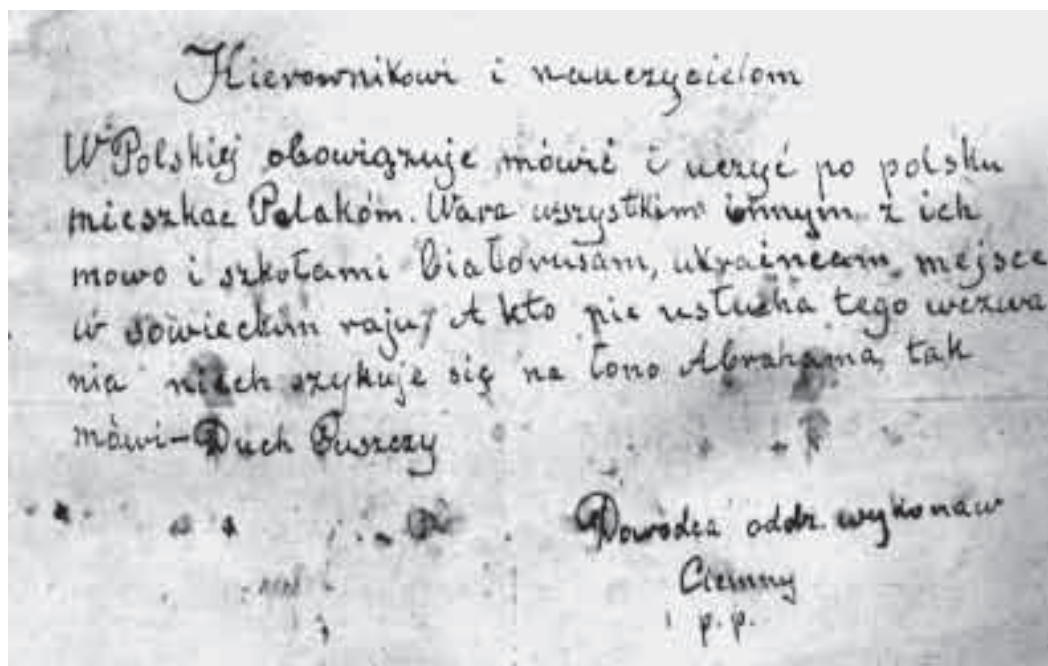 Kierownikowi i nauczycielom
W Polskiej obowiązuje mówić i uczyć po polsku
mieszkac Polakóm. Wara wszystkim innym z ich
mowo i szkołami Białorusam, ukraincam mejsce
w sowieckim raju, A kto nie usłucha tego wezwa
nia niech szykuje się na łono Abrahama, tak
mówi – Duch Puszczy
Dowodca oddz. wykonaw
Ciemny
p.p.